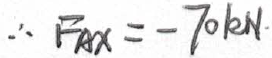 ∴ FAX = -70kN.